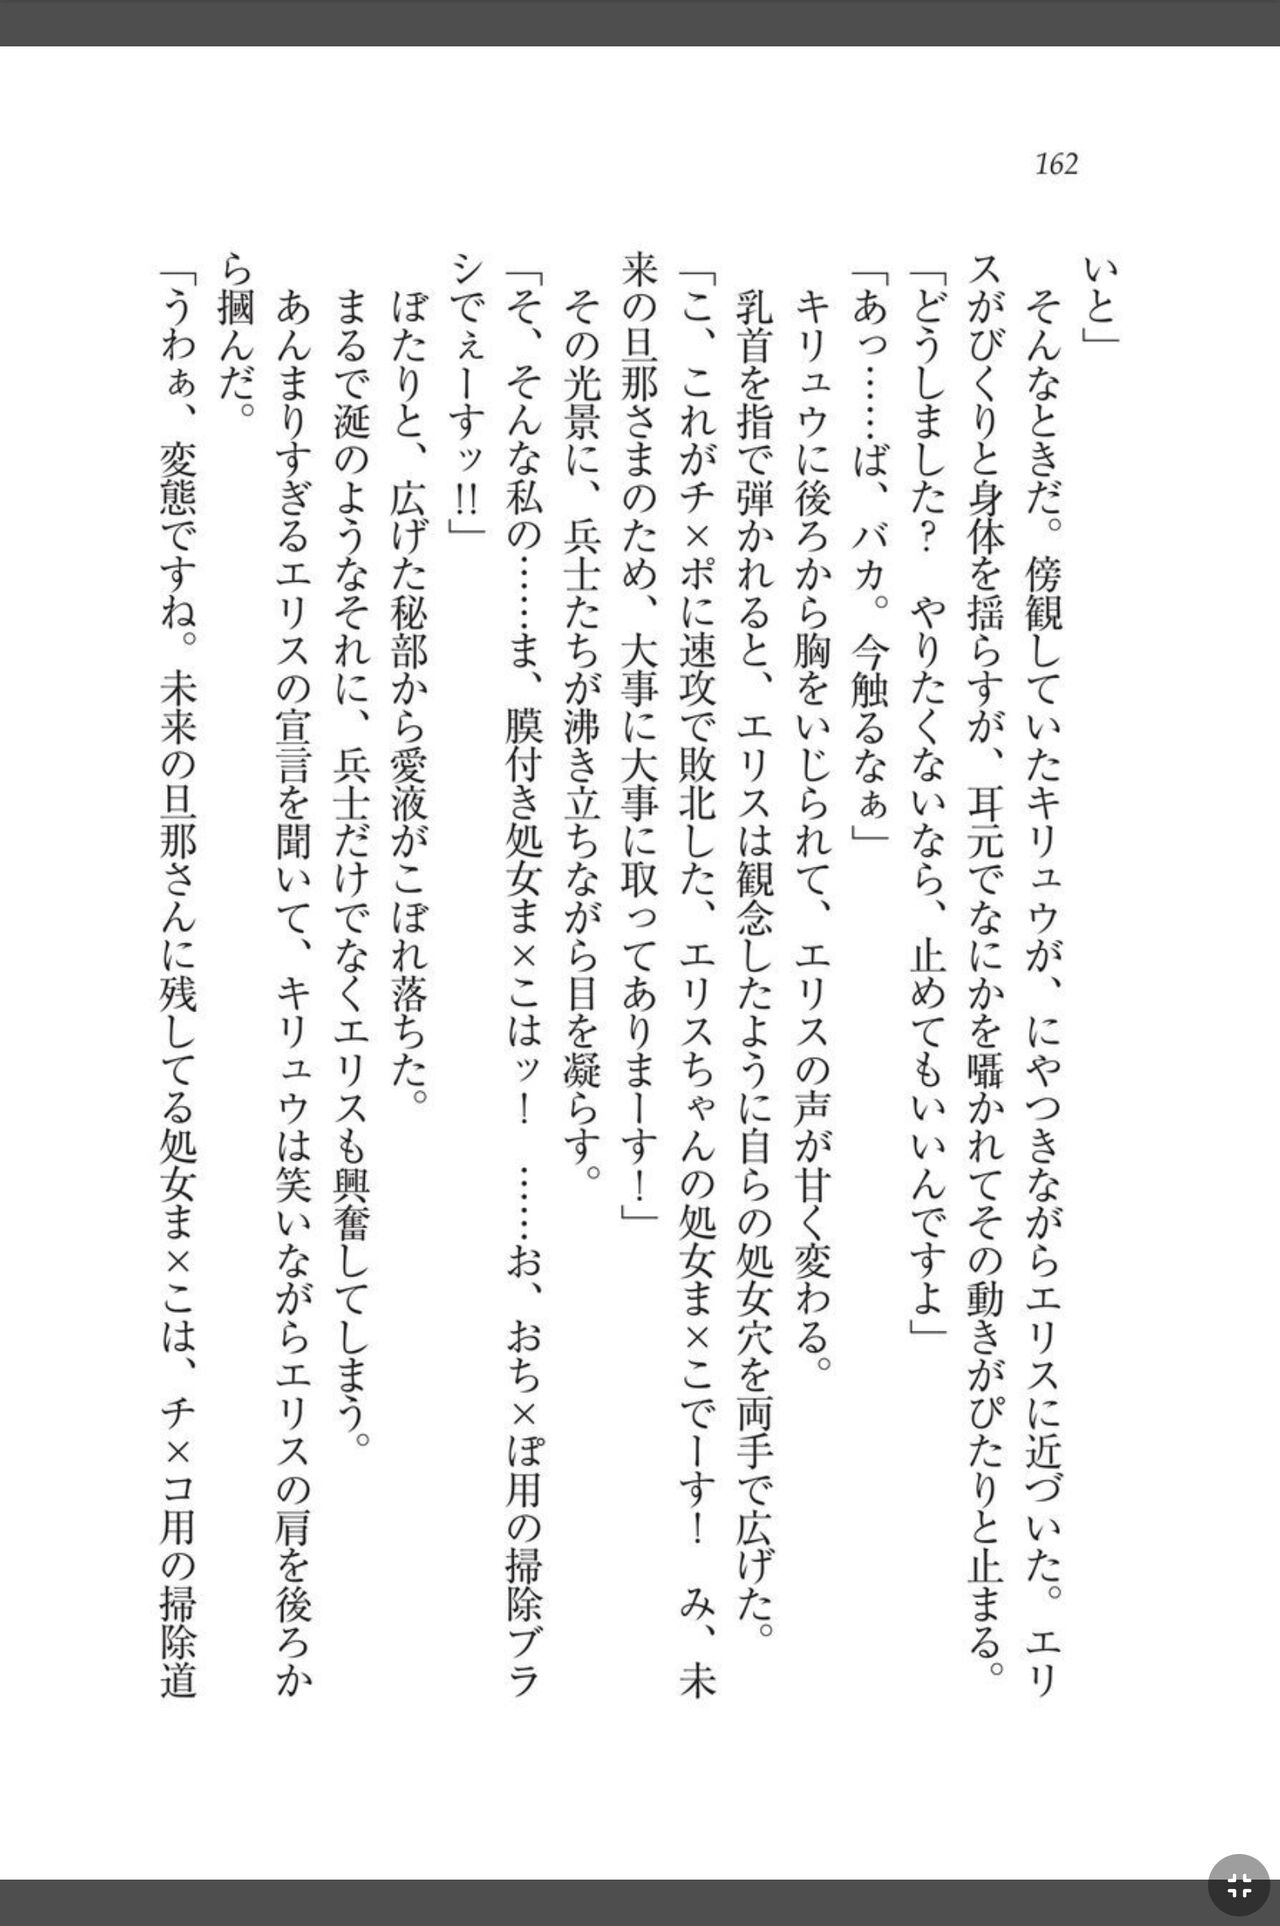 162
いと」
　そんなときだ。傍観していたキリュウが、にやつきながらエリスに近づいた。エリ
スがびくりと身体を揺らすが、耳元でなにかを囁かれてその動きがぴたりと止まる。
「どうしました？　やりたくないなら、止めてもいいんですよ」
「あっ……ば、バカ。今触るなぁ」
　キリュウに後ろから胸をいじられて、エリスの声が甘く変わる。
　乳首を指で弾かれると、エリスは観念したように自らの処女穴を両手で広げた。
「こ、これがチ×ポに速攻で敗北した、エリスちゃんの処女ま×こでーす！　み、未
来の旦那さまのため、大事に大事に取ってありまーす！」
　その光景に、兵士たちが沸き立ちながら目を凝らす。
「そ、そんな私の……ま、膜付き処女ま×こはッ！　……お、おち×ぽ用の掃除ブラ
シでぇーすッ!!」
　ぽたりと、広げた秘部から愛液がこぼれ落ちた。
　まるで涎のようなそれに、兵士だけでなくエリスも興奮してしまう。
　あんまりすぎるエリスの宣言を聞いて、キリュウは笑いながらエリスの肩を後ろか
ら摑んだ。
「うわぁ、変態ですね。未来の旦那さんに残してる処女ま×こは、チ×コ用の掃除道